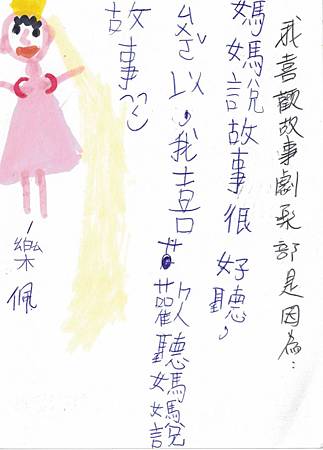 我喜歡故事劇乐部是因為：
媽媽說故事很好聽，
ㄙㄨㄛˇ以，我喜歡聽媽媽說
故事
樂佩